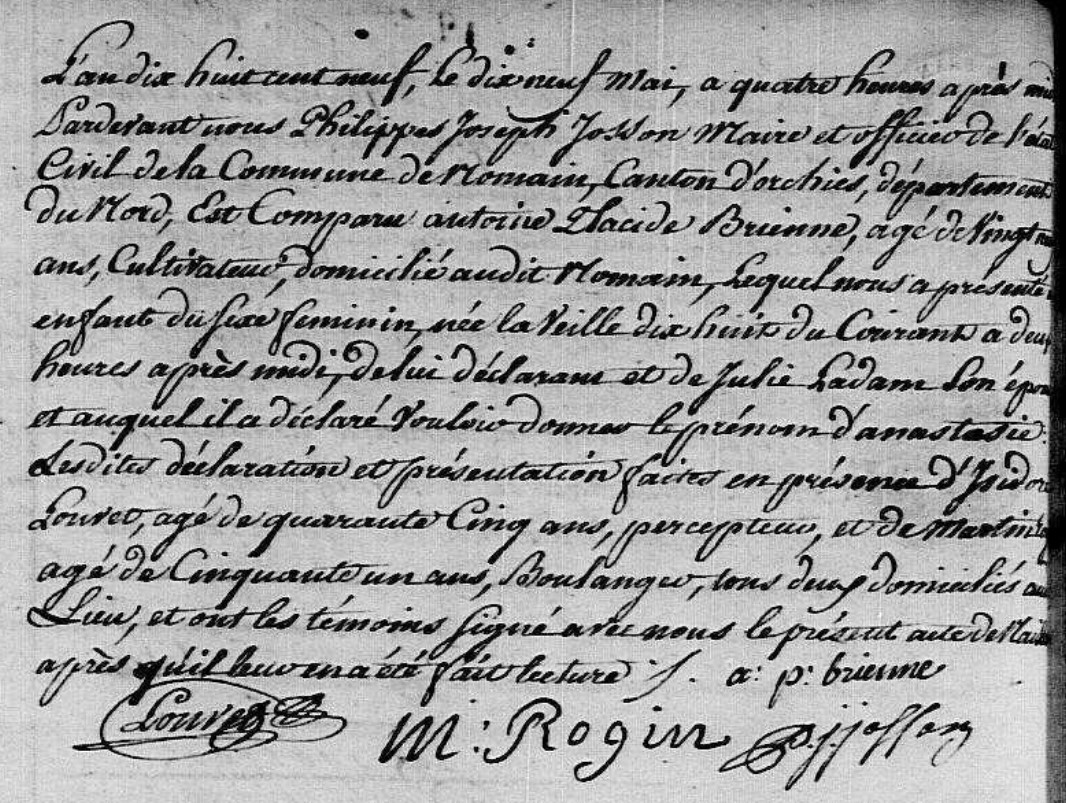 L'an dix huit cent neuf, le dix neuf Mai, a quatre heures après mid
Pardevant nous Philippes Joseph Josson Maire et officier de l'état
Civil de la Commune de Nomain, Canton d'orchies, département
du Nord, Est Comparu antoine Placide Brienne, agé de Vingt
ans, Cultivateur, domicilié audit Nomain, Lequel nous a présenté
enfant du sexe feminin, née la Veille dix huit du Courant a deux
heures après midi, de lui déclarant et de Julie Ladam Son épou
et auquel il a déclaré Vouloir donner le prénom d'anastasie.
Lesdites déclaration et présentation faites en présence d'Isidore
Louvet, agé de quarante Cinq ans, percepteur, et de Martin
agé de Cinquante un ans, Boulanger, tous deux domiciliés au
Lieu, et ont les témoins signé avec nous le présent acte de Nais
après qu'il leur en a été fait lecture /. a: p: brienne
Louvet M: Rogin p. j. josson